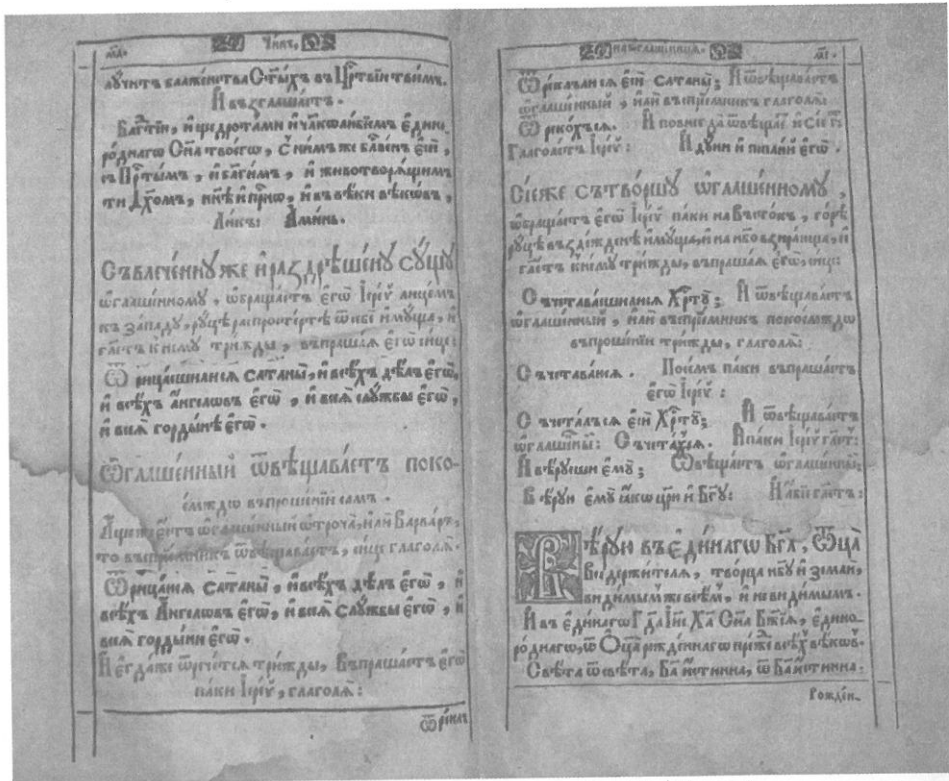 Чинъ,
лучитъ блаженства Ст҃ыхъ въ Цр҃твїи твоемъ.
И възглашаетъ.
Бл҃гтїю, и щедротами и чл҃колюбїемъ Едино-
роднаго Сн҃а твоего, с нимъ же блв҃енъ еси,
съ Пр҃тымъ, и бл҃гимъ, и животворящимъ
ти Дх҃омъ, нн҃ѣ и прнѡ, и въ вѣки вѣкѡвъ,
Ликъ: Аминь.
Съвлеченну же и раздрѣшену сущу
ѡглашенному, ѡбращаетъ егѡ Іерей лицемъ
къ западу, руцѣ распростертѣ ѿ себе имуща, и
гл҃етъ к нему трижды, въпрашая егѡ сице:
Ѿрицаешилися сатаны, и всѣхъ дѣлъ егѡ,
и всѣхъ Аггелѡвъ егѡ, и всея службы егѡ,
и всея гордынѣ егѡ.
Ѡглашенный ѿвѣщаваетъ поко-
емждо въпрошенїи самъ.
Аще же есть ѡглашенный ѡтроча, или Варваръ,
то въспрїемникъ ѿвѣщаваетъ, сице глаголя.
Ѿрицаюся сатаны, и всѣхъ дѣлъ егѡ, и
всѣхъ Аггелѡвъ егѡ, и всея службы егѡ, и
всея гордыни егѡ.
И егда же ѿречется трижды, Въпрашаетъ егѡ
паки Іерей, глаголя:
Ѿрекл
на ѡглашенїиця.
Ѿреклълися еси сатаны; И ѿвѣщаваетъ
ѡглашенный, или въспрїемникъ глаголя:
Ѿрекохъся. И повнегда ѿвѣщаетъ
Глаголетъ Іерей: И дуни и плюни егѡ.
Сїе же сътворшу ѡглашенному,
ѡбращаетъ егѡ Іерей паки на Въстокъ, горѣ
руцѣ въздеженѣ имуща, и на нб҃о взирающа, и
гл҃етъ к нему трижды, въпрашая егѡ, сице:
Съчетаваешилися Хрт҃у; И ѿвѣщаваетъ
ѡглашенный, или въспрїемникъ покоемждо
въпрошенїи трижды, глаголя:
Съчетаваюся. Посемъ паки въпрашаетъ
егѡ Іерей:
Съчеталъся еси Хрт҃у; И ѿвѣщаваетъ
ѡглашенный: Съчетахъся. И паки Іерей гл҃етъ:
И вѣруеши ему; Ѿвѣщаетъ ѡглашенный:
Вѣрую ему яко цр҃ю и Бг҃у: И абїе гл҃етъ:
Вѣрую въ Единаго Бг҃а, Ѿца
Вседержителя, творца нб҃у и земли,
видимымже всѣмъ, и невидимымъ.
И въ единаго Гд҃а Іи҃с Ха҃ Сн҃а Бж҃їя, едино-
роднаго, ѿ Оц҃а рожденнаго преже всѣхъ вѣкъ.
Свѣта ѿ свѣта, Ба҃ истинна, ѿ Ба҃ истинна.
Рожден